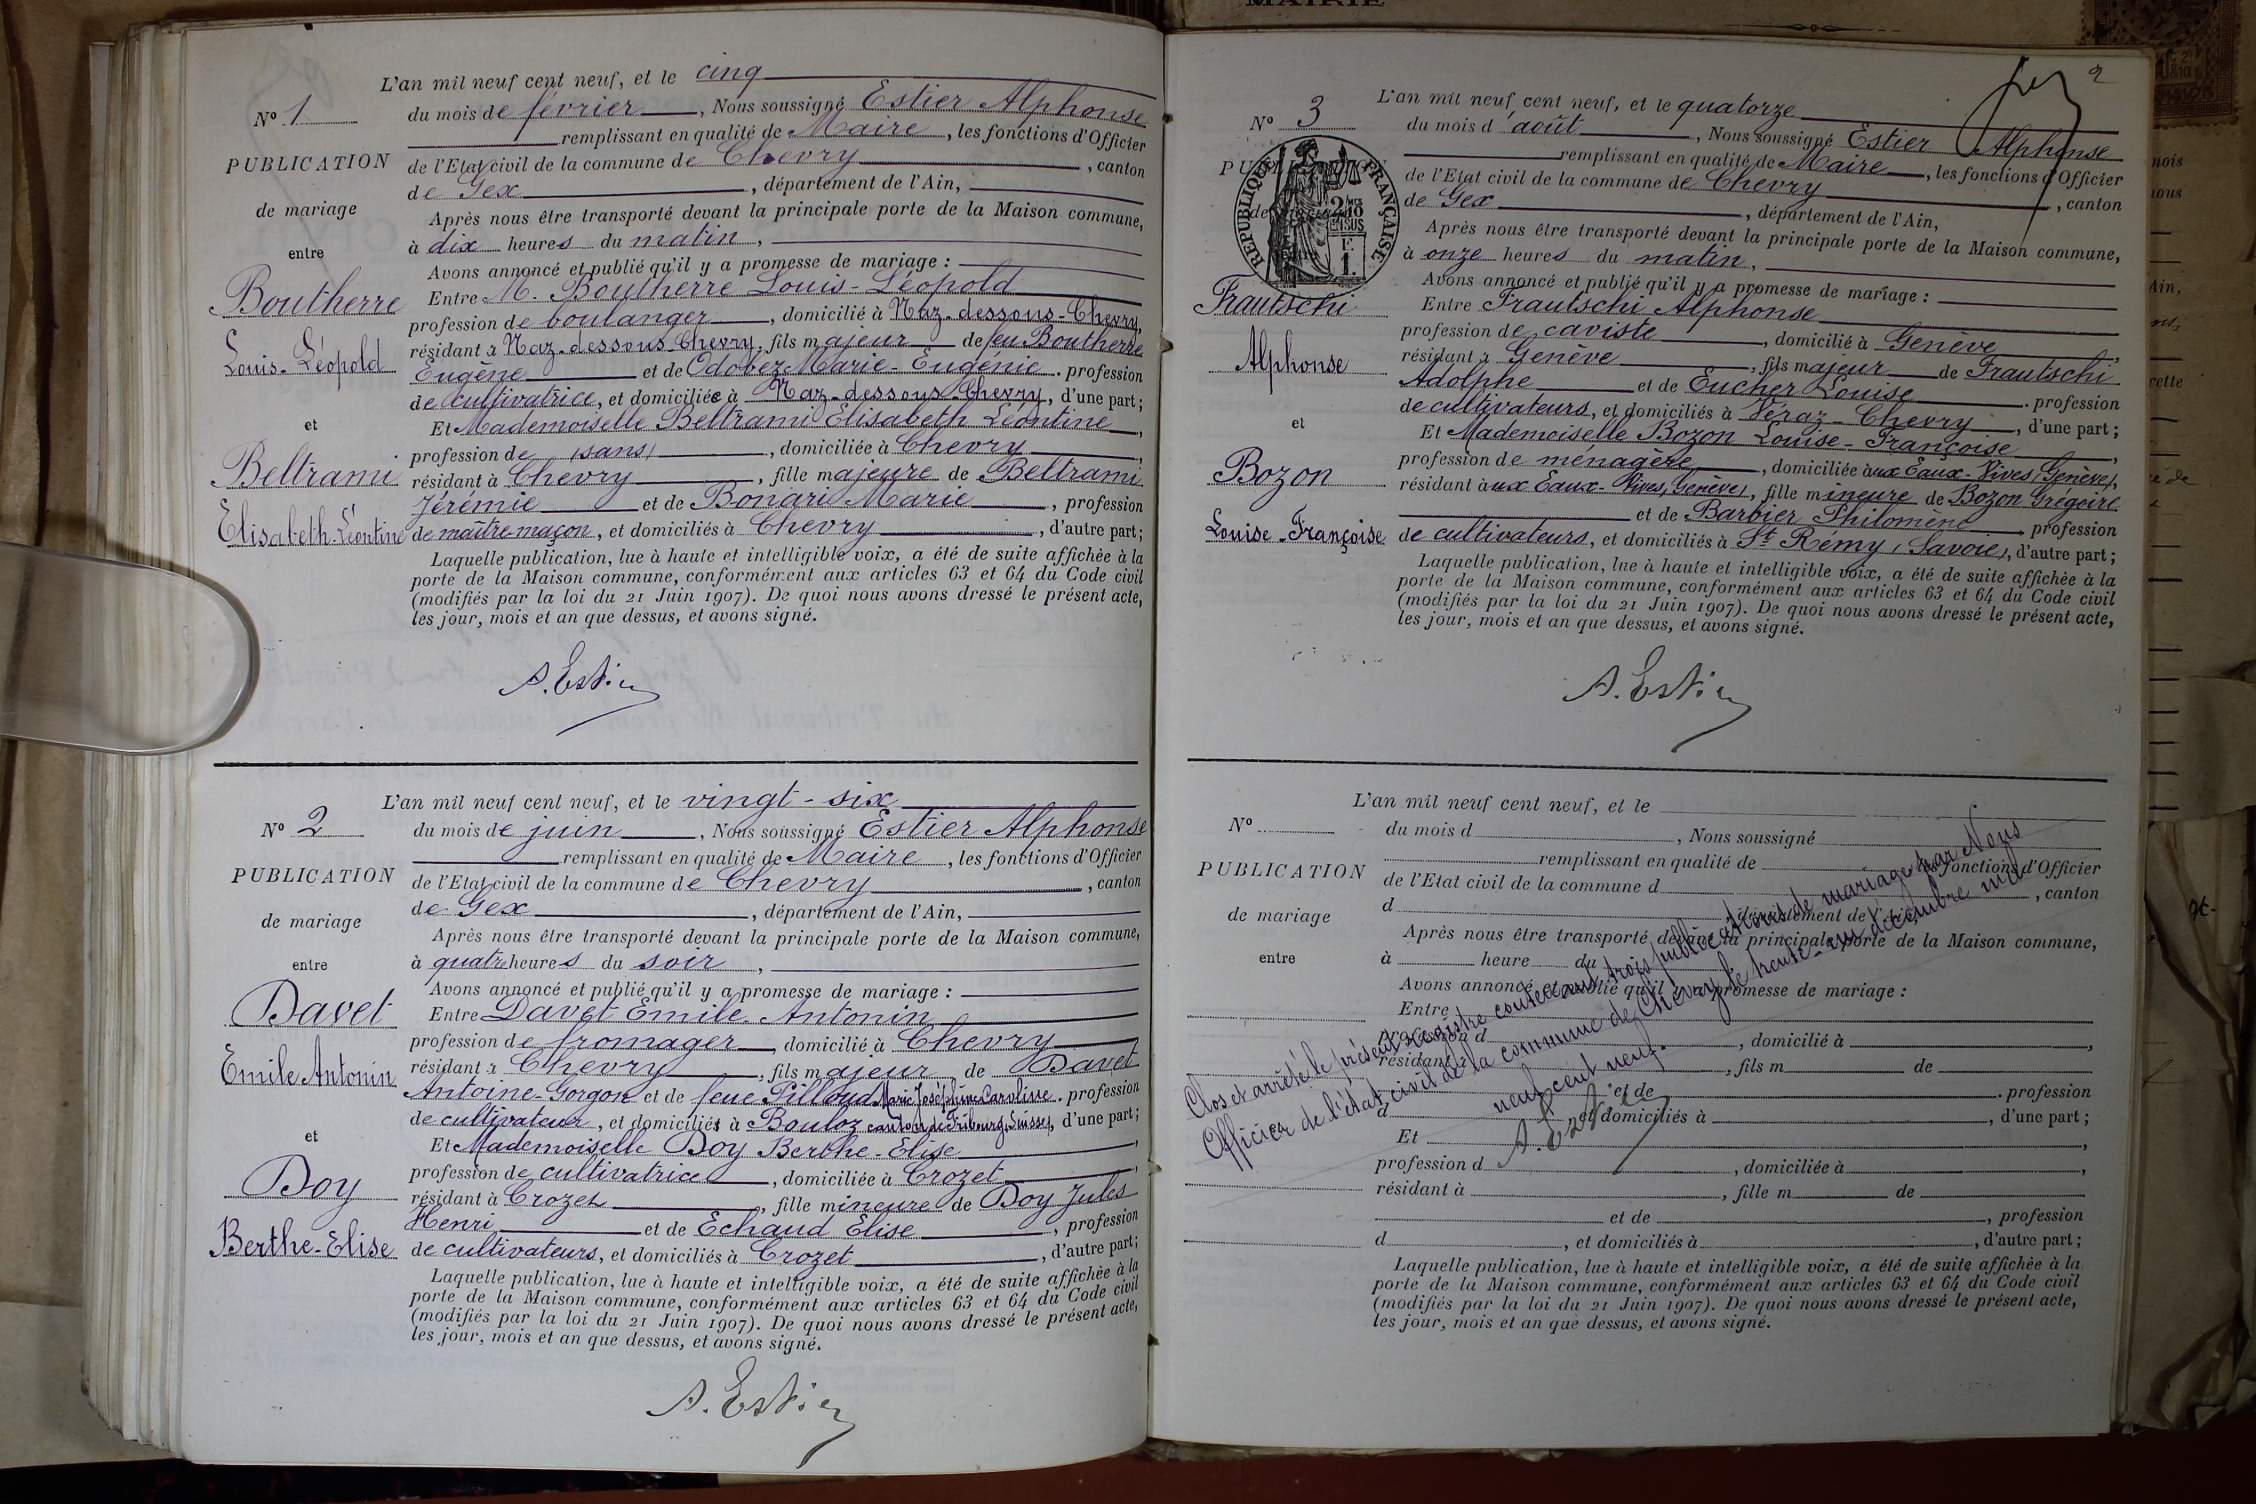 MAIRIE
L'an mil neuf cent neuf, et le cinq
Nº 1
du mois de février, Nous soussigné Estier Alphonse
remplissant en qualité de Maire, les fonctions d'Officier
PUBLICATION
de l'Etat civil de la commune de Chevry, canton
de Gex, département de l'Ain,
de mariage
Après nous être transporté devant la principale porte de la Maison commune,
à dix heures du matin,
entre
Avons annoncé et publié qu'il y a promesse de mariage :
Boutherre
Entre M. Boutherre Louis-Léopold
profession de boulanger, domicilié à Naz-dessous-Chevry,
résidant à Naz-dessous-Chevry, fils majeur de feu Boutherre
Louis-Léopold
Eugène et de Odobez Marie-Eugénie. profession
de cultivatrice, et domiciliée à Naz-dessous-Chevry, d'une part;
et
Et Mademoiselle Beltrami Elisabeth Léontine,
profession de (sans), domiciliée à Chevry,
Beltrami
résidant à Chevry, fille majeure de Beltrami
Jérémie et de Bonari Marie, profession
Elisabeth-Léontine
de maître-maçon, et domiciliés à Chevry, d'autre part;
Laquelle publication, lue à haute et intelligible voix, a été de suite affichée à la
porte de la Maison commune, conformément aux articles 63 et 64 du Code civil
(modifiés par la loi du 21 Juin 1907). De quoi nous avons dressé le présent acte,
les jour, mois et an que dessus, et avons signé.
A. Estier
L'an mil neuf cent neuf, et le vingt-six
Nº 2
du mois de juin, Nous soussigné Estier Alphonse
remplissant en qualité de Maire, les fonctions d'Officier
PUBLICATION
de l'Etat civil de la commune de Chevry, canton
de Gex, département de l'Ain,
de mariage
Après nous être transporté devant la principale porte de la Maison commune,
à quatre heures du soir,
entre
Avons annoncé et publié qu'il y a promesse de mariage :
Davet
Entre Davet Emile-Antonin
profession de fromager, domicilié à Chevry
résidant à Chevry, fils majeur de Davet
Emile Antonin
Antoine-Gorgon et de feue Pilloud Marie Joséphine Caroline. profession
de cultivateur, et domiciliés à Bouloz canton de Fribourg, (Suisse), d'une part;
et
Et Mademoiselle Doy Berthe-Elise,
profession de cultivatrice, domiciliée à Crozet,
Doy
résidant à Crozet, fille mineure de Doy Jules
Henri et de Echaud Elise, profession
Berthe-Elise
de cultivateurs, et domiciliés à Crozet, d'autre part;
Laquelle publication, lue à haute et intelligible voix, a été de suite affichée à la
porte de la Maison commune, conformément aux articles 63 et 64 du Code civil
(modifiés par la loi du 21 Juin 1907). De quoi nous avons dressé le présent acte,
les jour, mois et an que dessus, et avons signé.
A. Estier
2
L'an mil neuf cent neuf, et le quatorze
Nº 3
du mois d'août, Nous soussigné Estier Alphonse
remplissant en qualité de Maire, les fonctions d'Officier
PUBLICATION
RÉPUBLIQUE FRANÇAISE
de l'Etat civil de la commune de Chevry, canton
de Gex, département de l'Ain,
de mariage
Après nous être transporté devant la principale porte de la Maison commune,
à onze heures du matin,
Avons annoncé et publié qu'il y a promesse de mariage :
Frautschi
Entre Frautschi Alphonse
profession de caviste, domicilié à Genève,
résidant à Genève, fils majeur de Frautschi
Alphonse
Adolphe et de Eucher Louise. profession
de cultivateurs, et domiciliés à Véraz-Chevry, d'une part;
et
Et Mademoiselle Bozon Louise-Françoise,
profession de ménagère, domiciliée aux Eaux-Vives (Genève),
Bozon
résidant aux Eaux-Vives (Genève), fille mineure de Bozon Grégoire
et de Barbier Philomène profession
Louise-Françoise
de cultivateurs, et domiciliés à St Rémy (Savoie), d'autre part;
Laquelle publication, lue à haute et intelligible voix, a été de suite affichée à la
porte de la Maison commune, conformément aux articles 63 et 64 du Code civil
(modifiés par la loi du 21 Juin 1907). De quoi nous avons dressé le présent acte,
les jour, mois et an que dessus, et avons signé.
A. Estier
L'an mil neuf cent neuf, et le
Nº
du mois d, Nous soussigné
remplissant en qualité de, les fonctions d'Officier
PUBLICATION
de l'Etat civil de la commune d, canton
d, département de l'Ain,
de mariage
Après nous être transporté devant la principale porte de la Maison commune,
entre
à heure du
Avons annoncé et publié qu'il y a promesse de mariage :
Entre
profession d, domicilié à
résidant à, fils m de
et de. profession
d, et domiciliés à, d'une part;
Et,
profession d, domiciliée à,
résidant à, fille m de
et de, profession
d, et domiciliés à, d'autre part;
Laquelle publication, lue à haute et intelligible voix, a été de suite affichée à la
porte de la Maison commune, conformément aux articles 63 et 64 du Code civil
(modifiés par la loi du 21 Juin 1907). De quoi nous avons dressé le présent acte,
les jour, mois et an que dessus, et avons signé.
Clos et arrêté le présent registre contenant trois publications de mariage par Nous
Officier de l'état civil de la commune de Chevry le trente-un décembre mil
neuf cent neuf.
A. Estier